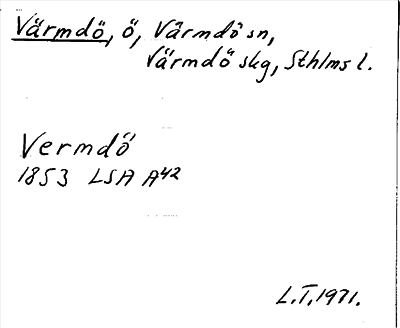 Värmdö, ö, Värmdö sn,
Värmdö skg, Sthlms l.
Vermdö
1853 LSA A42
L.T. 1971.